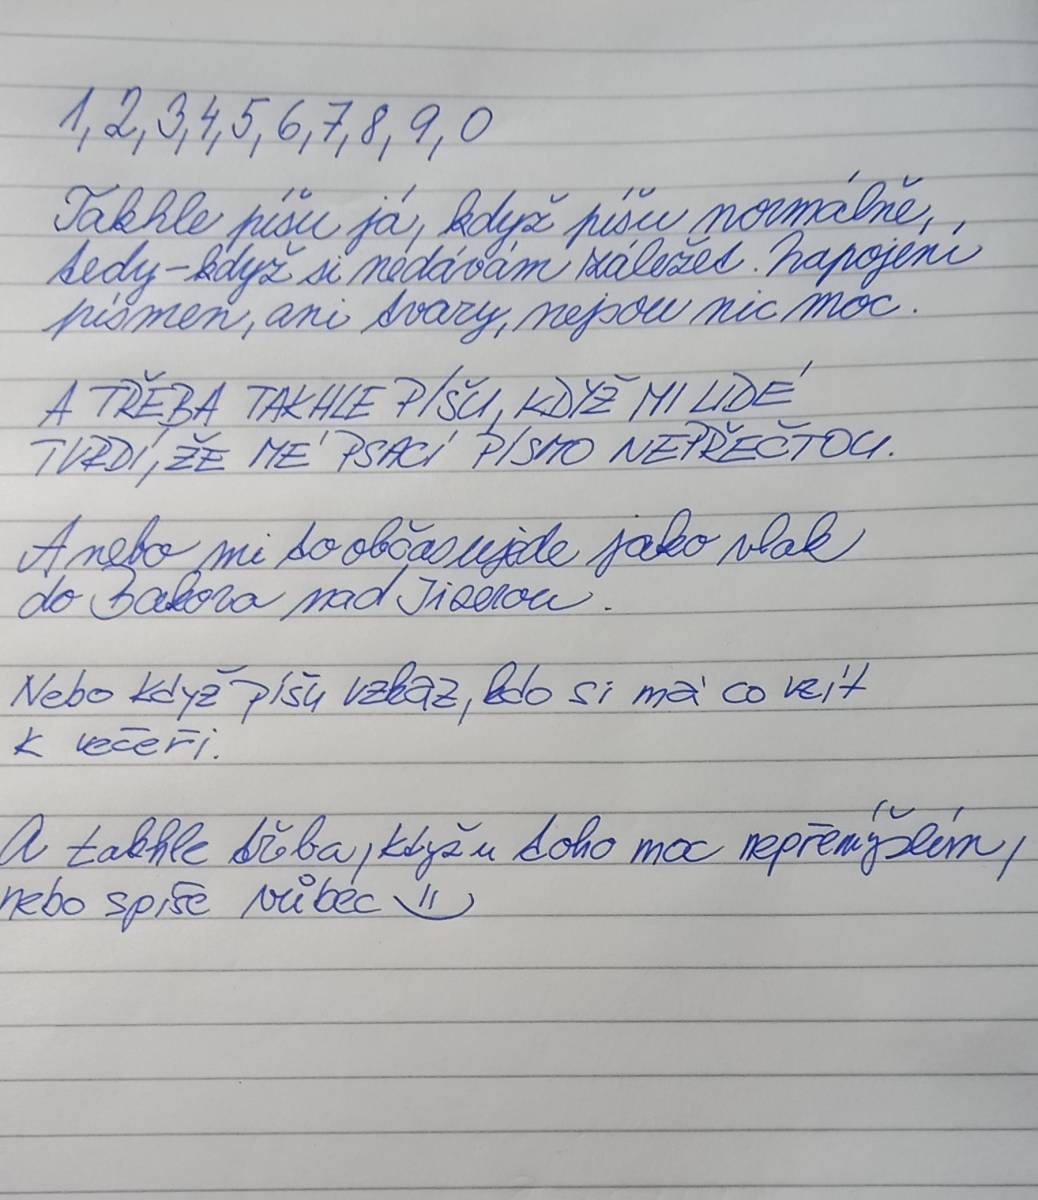 1, 2, 3, 4, 5, 6, 7, 8, 9, 0
Takhle píšu já, když píšu normálně,
tedy - když si nedávám záležet. Napojení
písmen, ani tvary, nejsou nic moc.
A TŘEBA TAKHLE PÍŠU, KDYŽ MI LIDÉ
TVRDÍ, ŽE MÉ PSACÍ PÍSMO NEPŘEČTOU.
Anebo mi to občas ujede jako vlak
do Bakova nad Jizerou.
Nebo když píšu vzkaz, kdo si má co vzít
k večeři.
A takhle třeba, když u toho moc nepřemýšlím,
nebo spíše vůbec =)